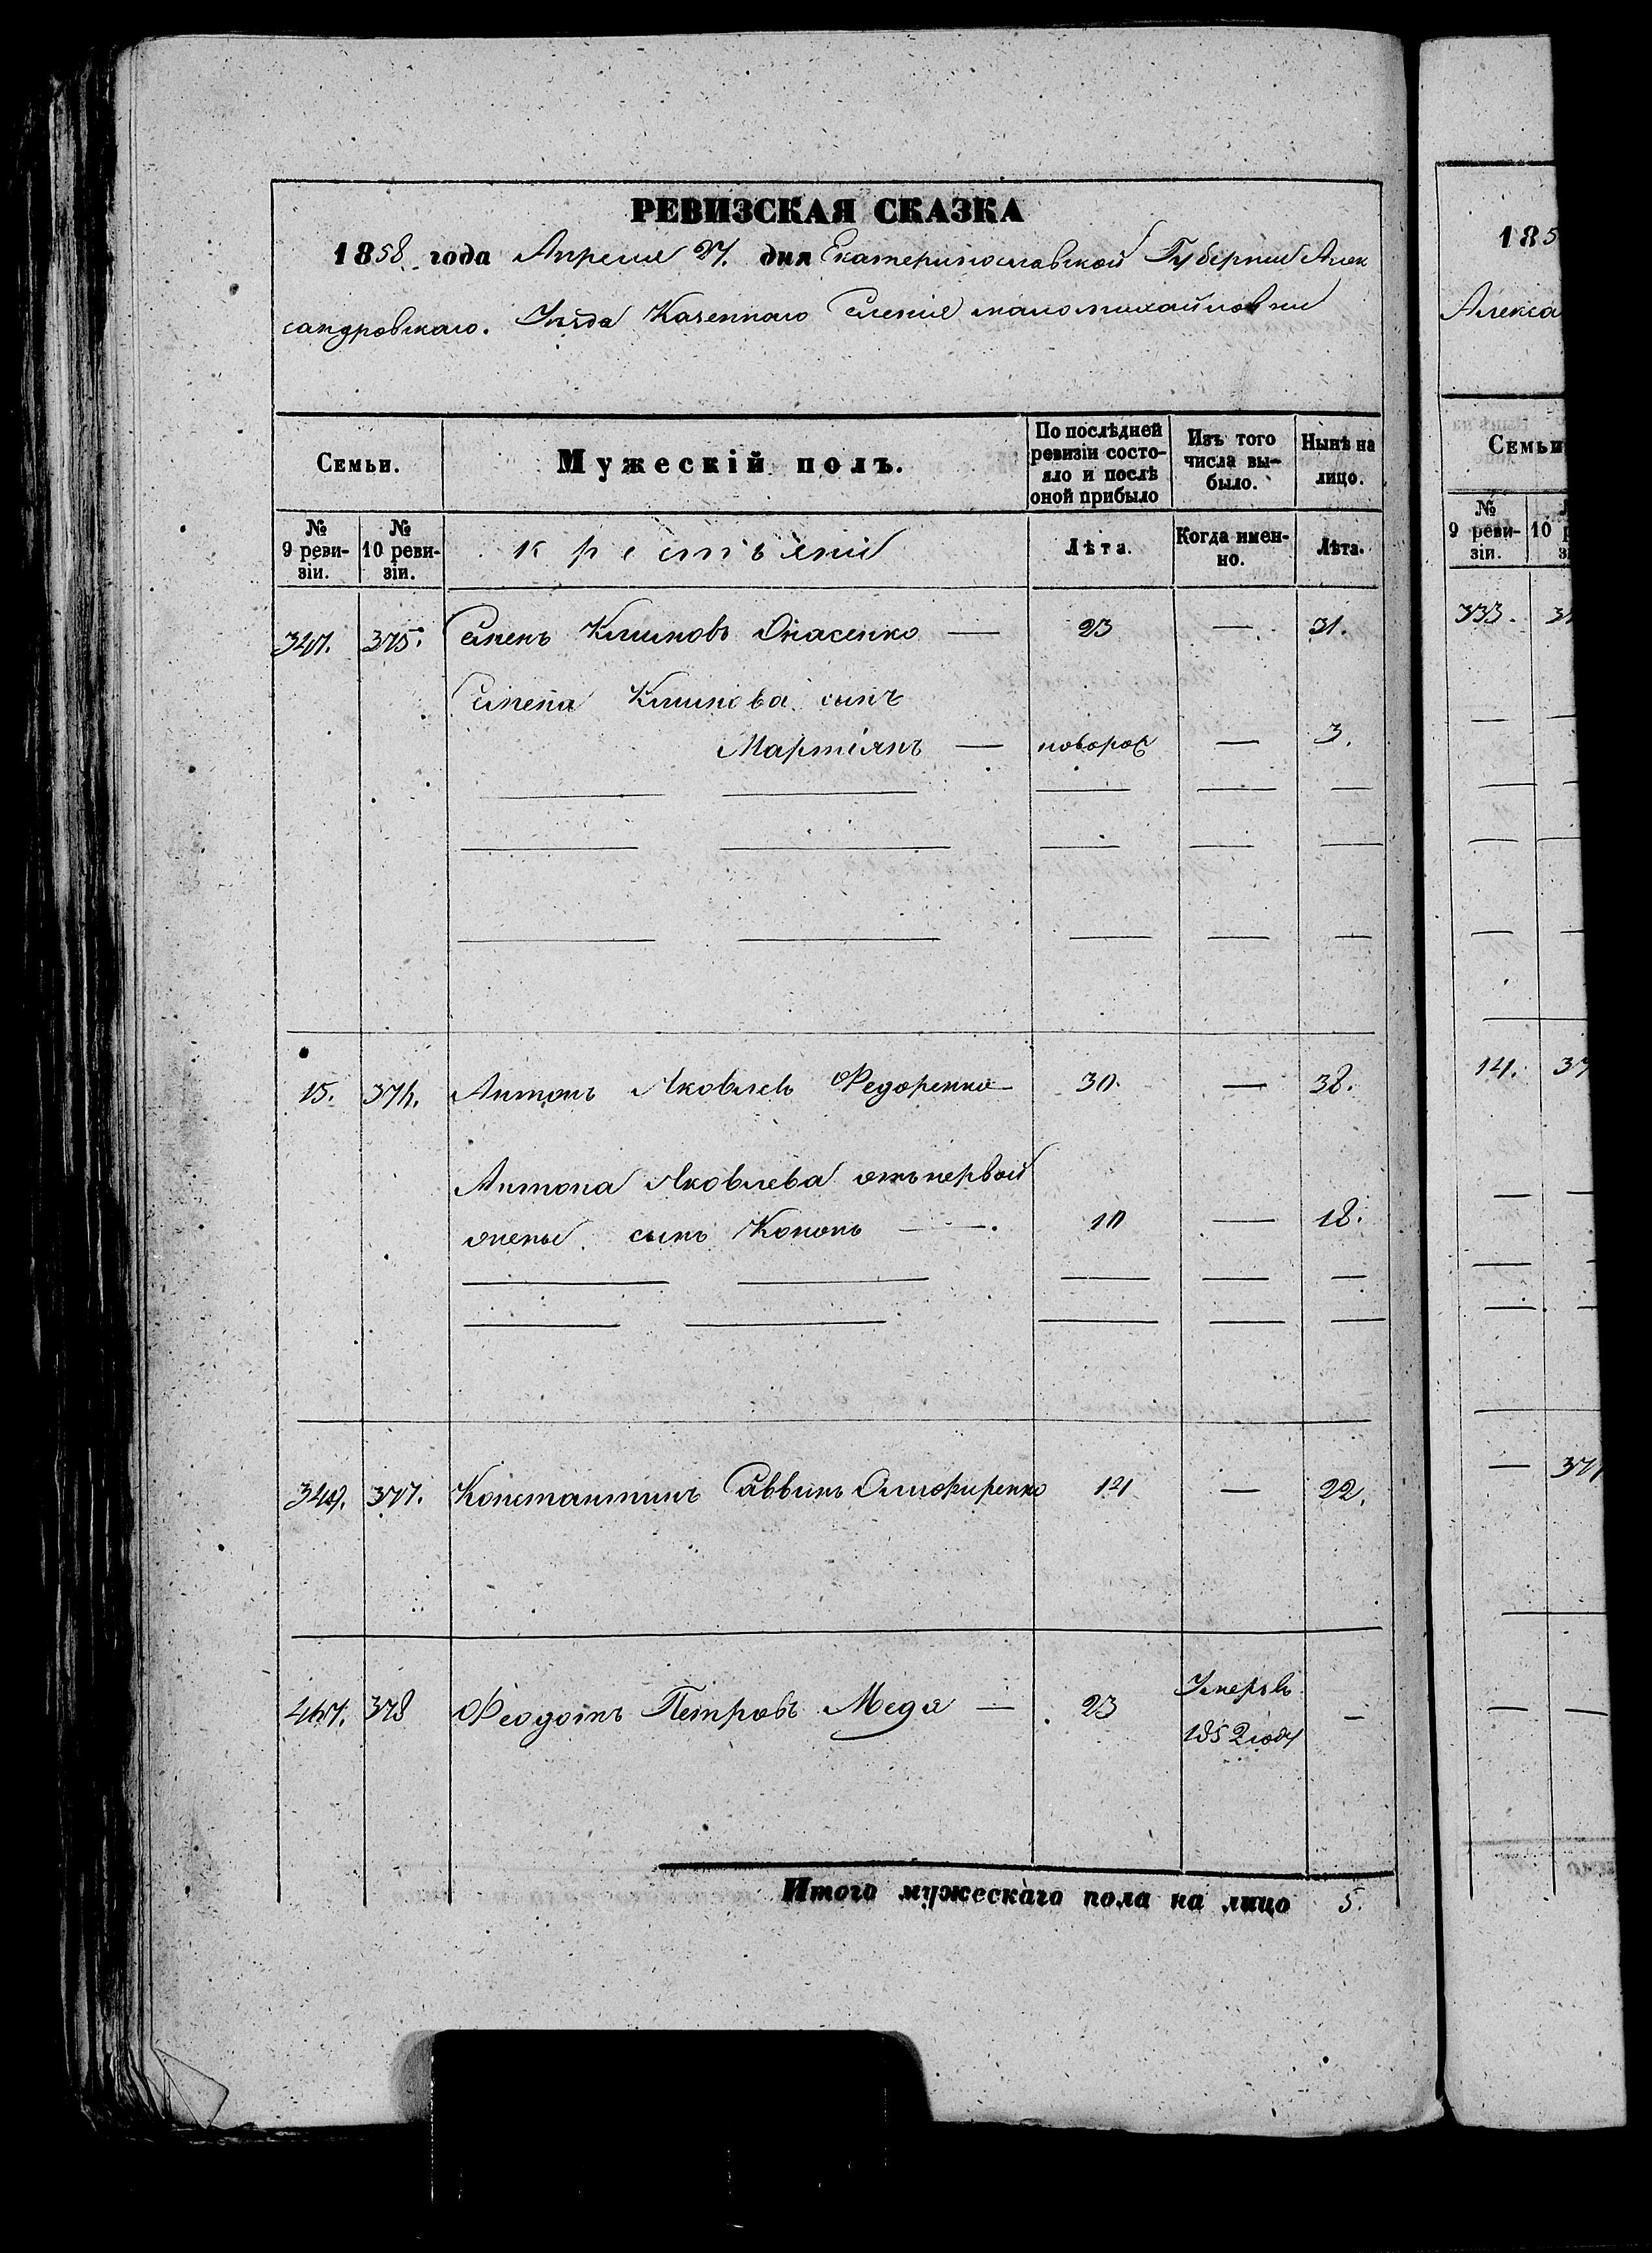 РЕВИЗСКАЯ СКАЗКА
1858 года Апреля 27. дня Екатеринославской Губерніи Алек
сандровскаго. Уѣзда Казеннаго Селенія маломихайловки
Семьи.
Мужескій полъ.
По послѣдней ревизіи состояло и послѣ оной прибыло
Изъ того числа выбыло.
Нынѣ на лицо.
№ 9 ревизіи.
№ 10 ревизіи.
крестьяне
Лѣта.
Когда именно.
Лѣта.
347. 375. Семенъ Климовъ Онасенко — 23 — 31.
Семена Климова сынъ
Мартіянъ — новорож — 3.
15. 376. Антонъ Яковлевъ Федоренко — 30 — 38.
Антона Яковлева отъ первой
жены сынъ Кононъ — 10 — 18.
349. 377. Константинъ Саввинъ Олифиренко 14 — 22.
467. 378 Феодотъ Петровъ Медя — 23 Умеръ въ —
1852 году
Итого мужескаго пола на лицо 5.
185
Алекса
Семьи
№ 9 ревизіи.
333.
14.
— 377